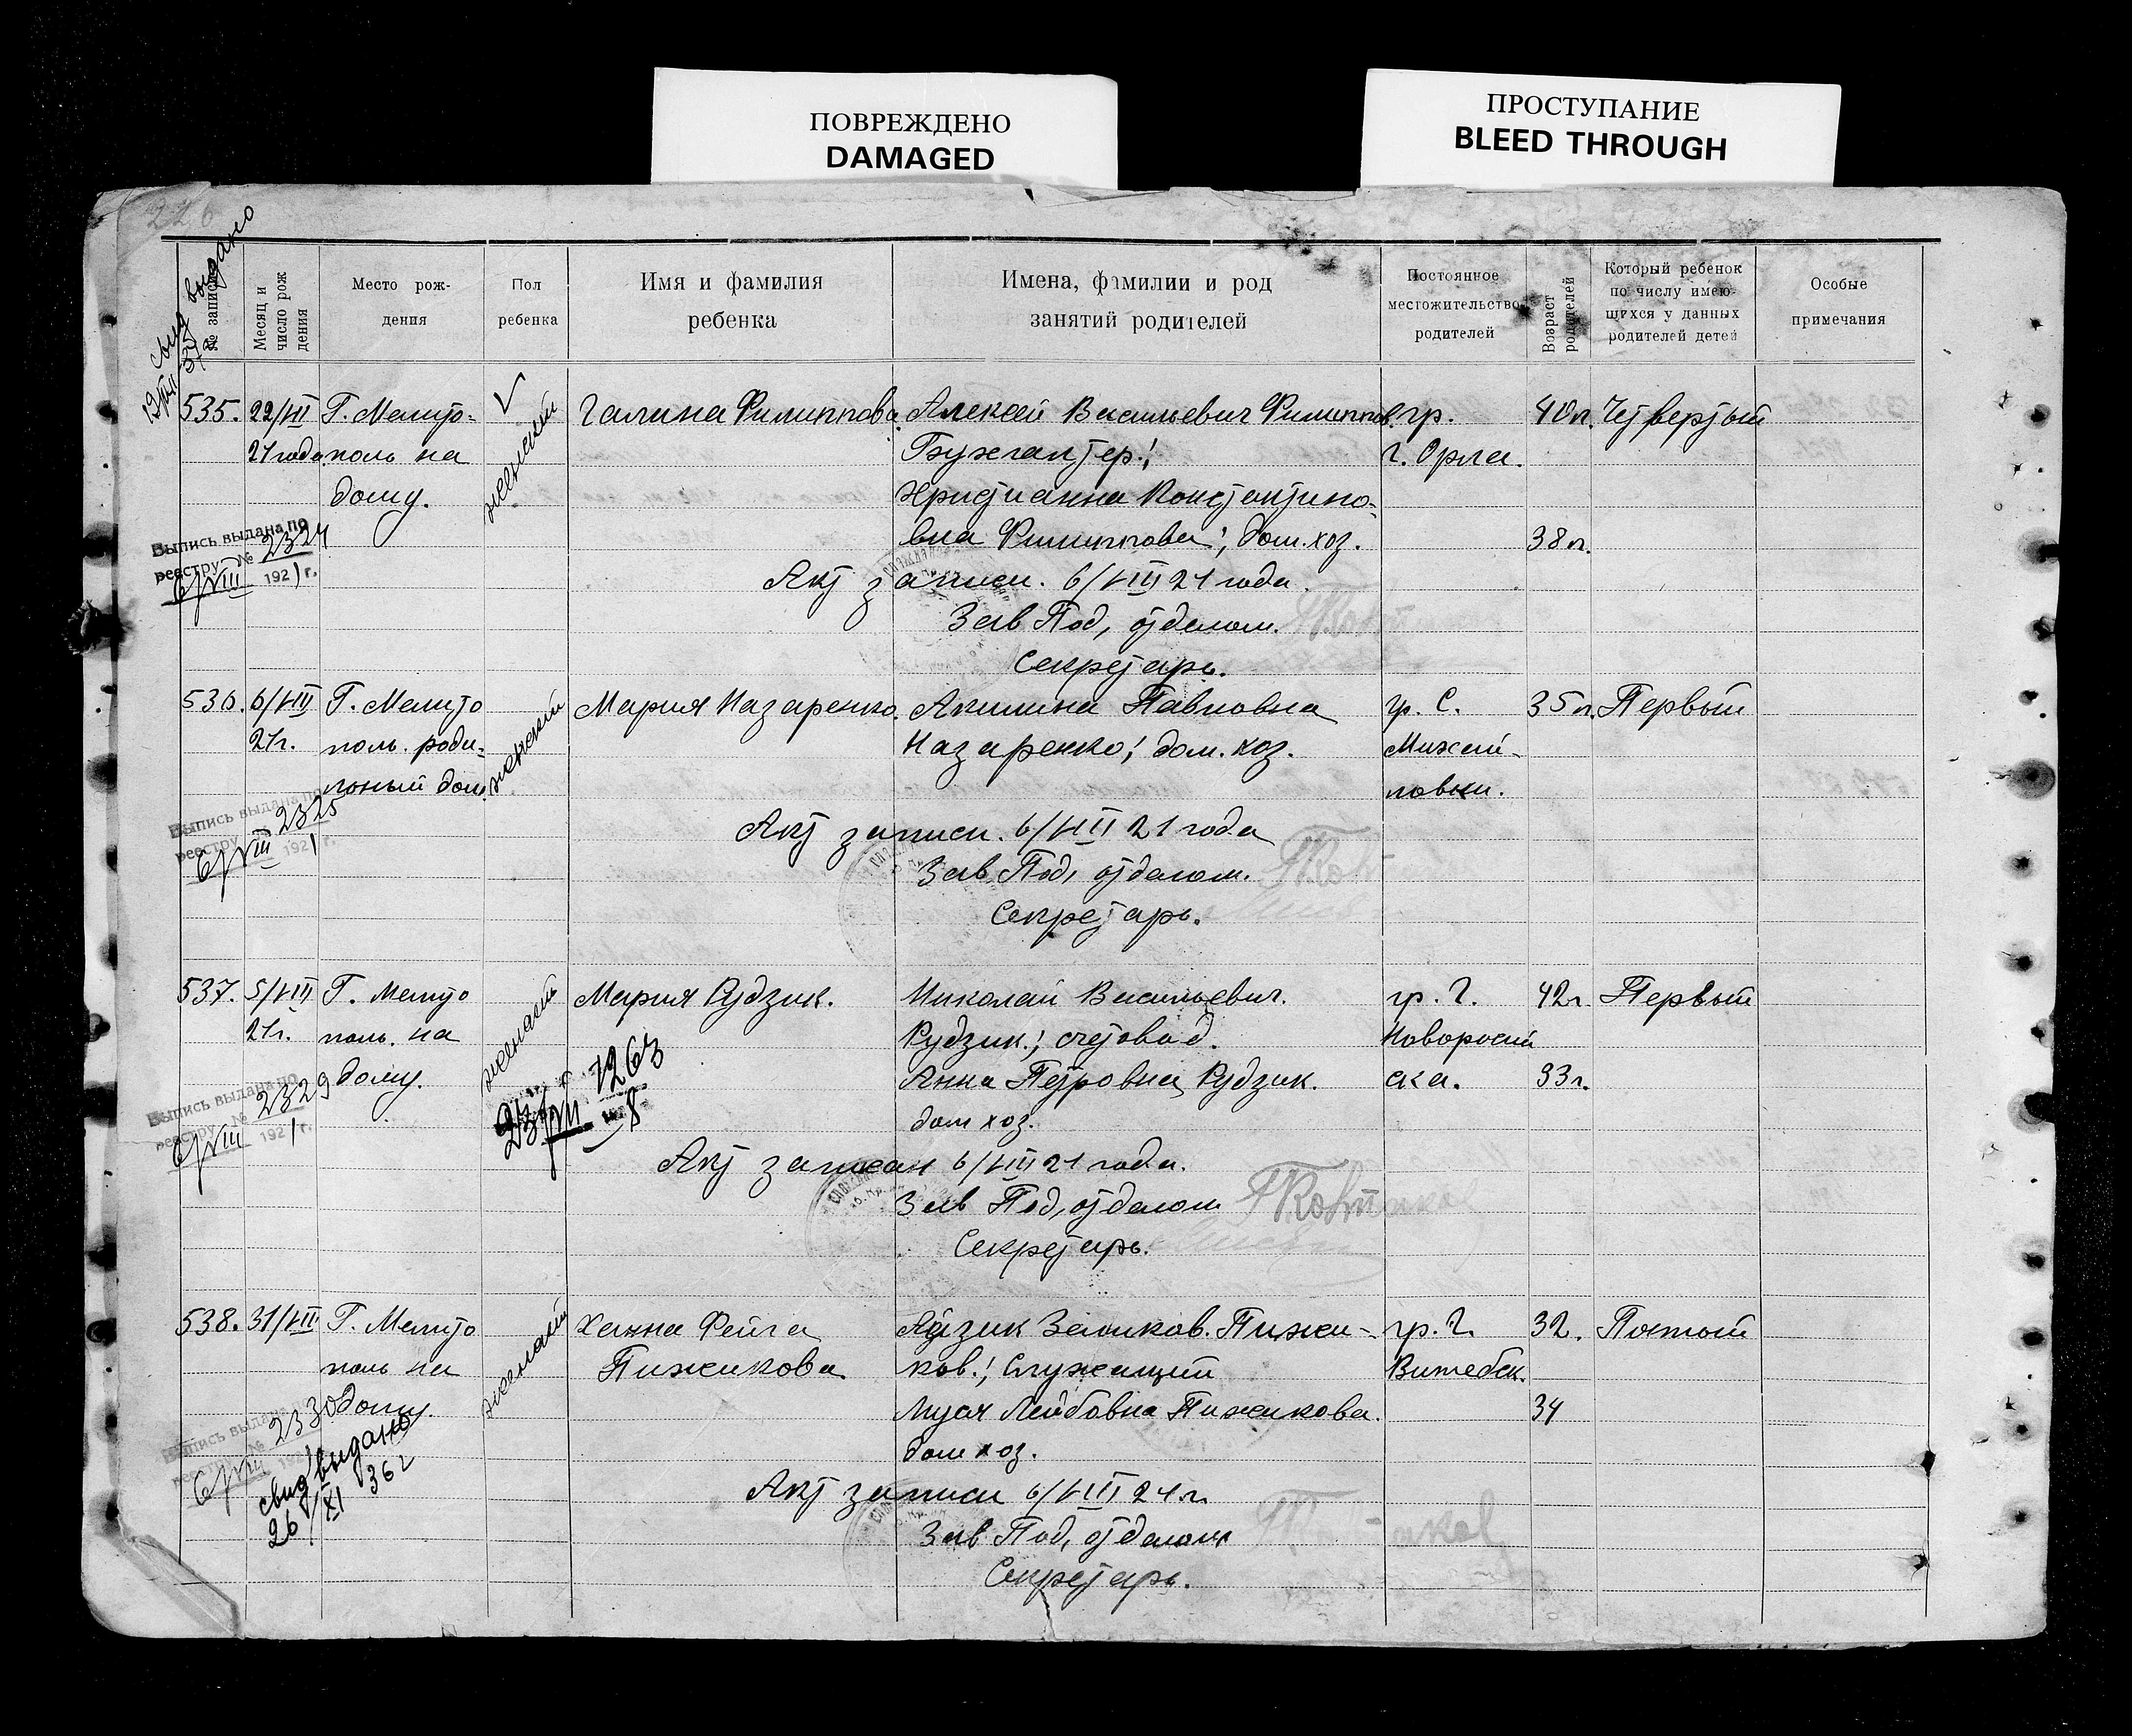 ПОВРЕЖДЕНО
DAMAGED
ПРОСТУПАНИЕ
BLEED THROUGH
226
свид выдано
№ записи
Месяц и число рождения
Место рож-
дения
Пол
ребенка
Имя и фамилия
ребенка
Имена, фамилии и род
занятий родителей
Постоянное
местожительство
родителей
Возраст родителей
Который ребенок
по числу имею-
щихся у данных
родителей детей
Особые
примечания
535. 22/VII Г. Мелито- женский Галина Филиппова. Алексей Васильевич Филиппов. гр. 40 л. Четвертый
21 года. поль на Бухгалтер.; г. Орла.
дому. Христианна Константино-
вна Филиппова; дом. хоз. 38 л.
Выпись выдана по
реестру № 2324
6/VIII 1921 г.
Акт записи. 6/VIII 21 года.
Зав Под, отделом.
Секретарь.
536. 6/VIII Г. Мелито женский Мария Назаренко. Акилина Павловна гр. С. 35 л. Первый
21 г. поль. роди- Назаренко; дом. хоз. Михай-
льный дом. ловки.
Выпись выдана по
реестру 2325
6/VIII 1921 г.
Акт записи. 6/VIII 21 года
Зав Под, отделом.
Секретарь.
537. 5/VIII Г. Мелито женский Мария Рудзик. Николай Васильевич. гр. г. 42 г. Первый
21 г. поль. на Рудзик.; счетовод. Новоросий
дому. Анна Петровна Рудзик. ска. 33 г.
дом хоз.
Выпись выдана по
реестру № 2329
6/VIII 1921 г.
1263
Акт записан 6/VIII 21 года.
Зав Под, отделом
Секретарь.
538. 31/VII Г. Мелито женский Ханна Фейга Айзик Залмков. Пижи- гр. г. 32. Пятый
поль на Пижикова ков.; Служащий Витебск.
дому. Муся Лейбовна Пижикова. 34
дом хоз.
Выпись выдана
№ 2330
6/VIII
свид выдано
26/XI 36 г
Акт записи 6/VIII 21 г.
Зав Под, отделом
Секретарь.